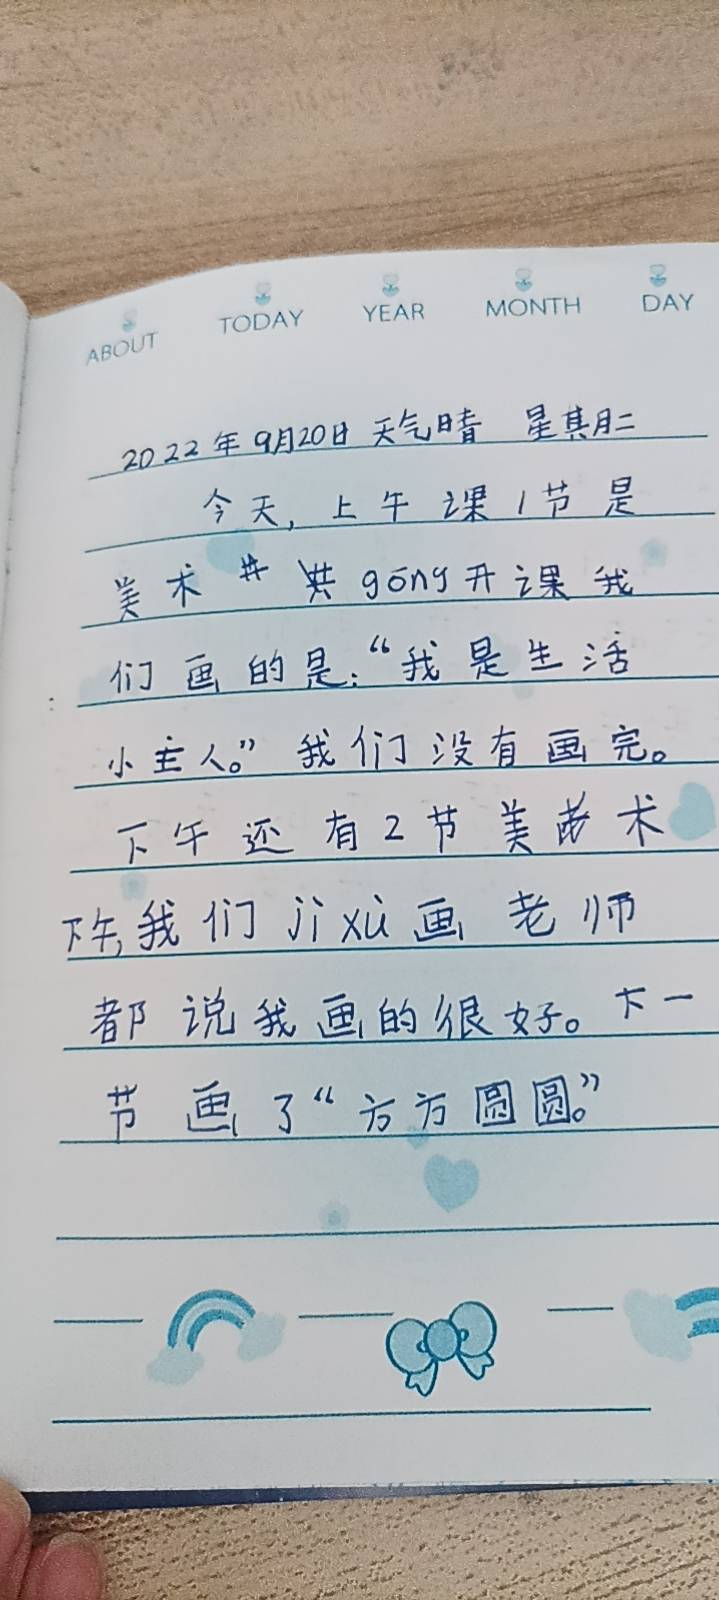 ABOUT TODAY YEAR MONTH DAY
2022年9月20日 天气晴 星其月二
今天,上午课1节是
美术 共gōng开课我
们画的是:“我是生活
小主人。”我们没有画完。
下午还有2节美术
下午,我们jìxù画老师
都说我画的很好。下一
节画了“方方圆圆。”